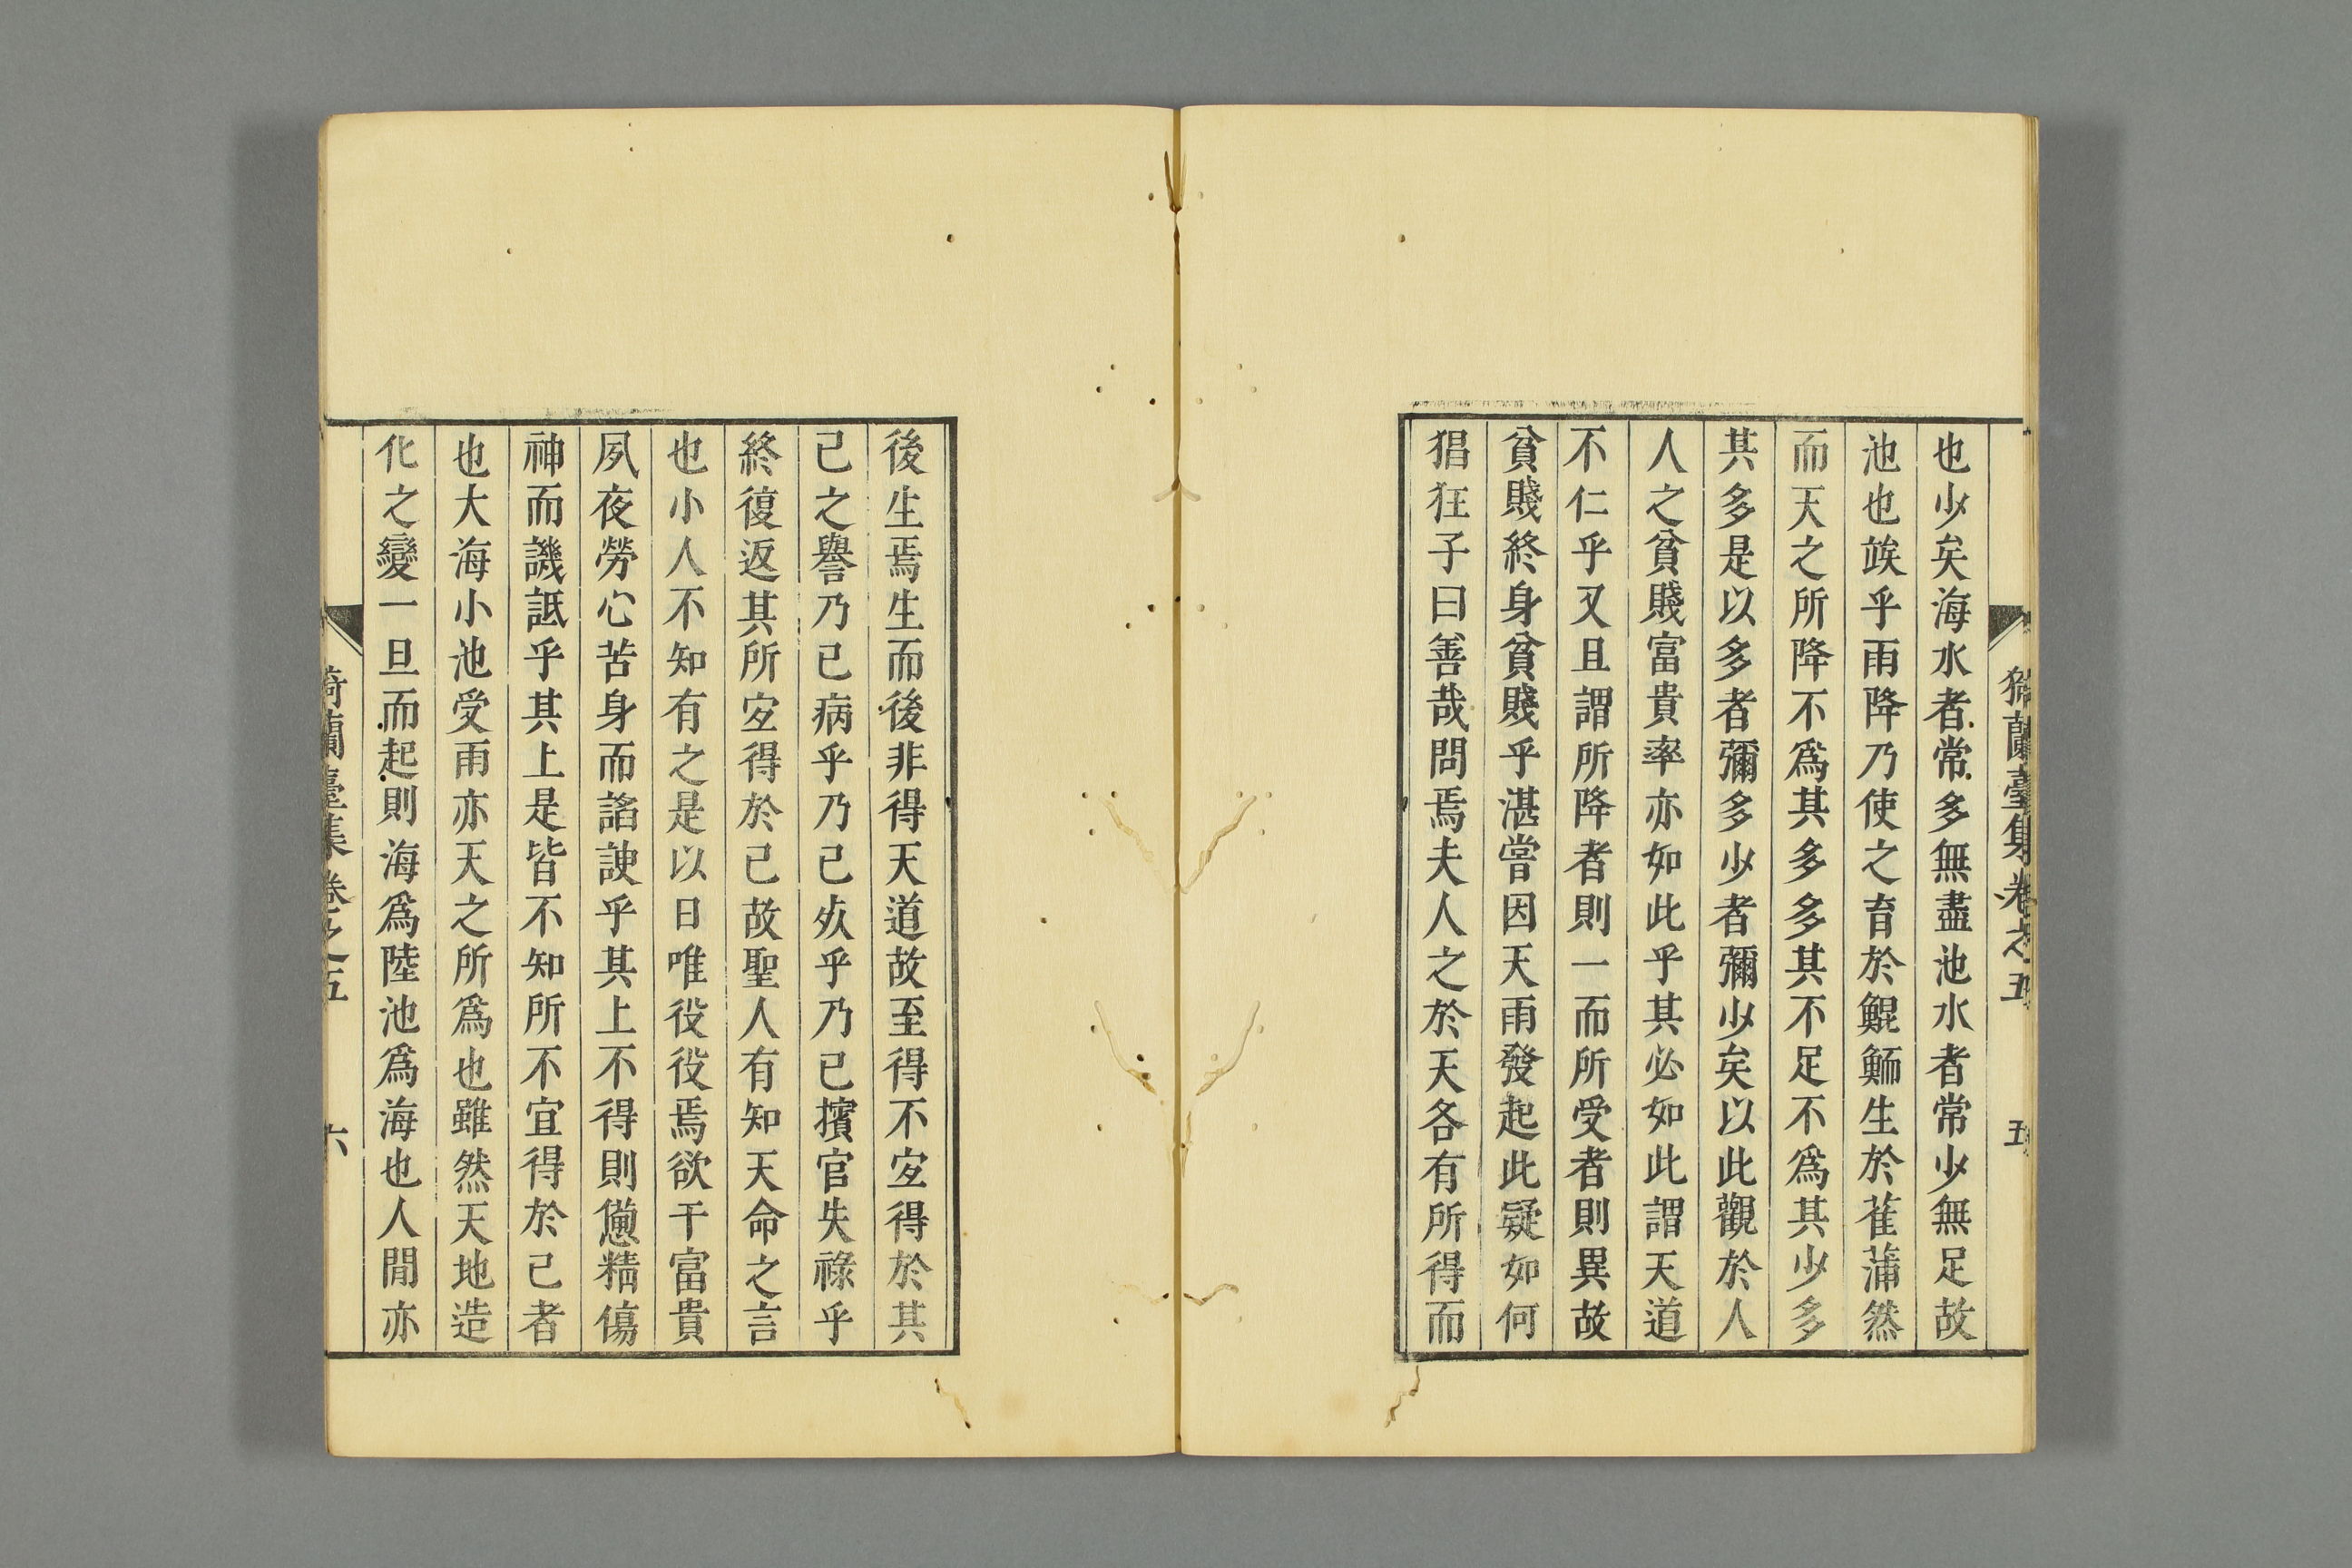 猗蘭臺集卷之五 五
也少矣海水者常多無盡池水者常少無足故
池也竢乎雨降乃使之育於鯤鰤生於萑蒲然
而天之所降不爲其多多其不足不爲其少多
其多是以多者彌多少者彌少矣以此觀於人
人之貧賤富貴率亦如此乎其必如此謂天道
不仁乎又且謂所降者則一而所受者則異故
貧賤終身貧賤乎湛嘗因天雨發起此疑如何
猖狂子曰善哉問焉夫人之於天各有所得而
後生焉生而後非得天道故至得不㝎得於其
已之譽乃已病乎乃已疚乎乃已擯官失祿乎
終復返其所㝎得於己故聖人有知天命之言
也小人不知有之是以日唯役役焉欲干富貴
夙夜勞心苦身而諂諛乎其上不得則憊精傷
神而譏詆乎其上是皆不知所不宜得於己者
也大海小池受雨亦天之所爲也雖然天地造
化之變一旦而起則海爲陸池爲海也人閒亦
猗蘭臺集卷之五 六